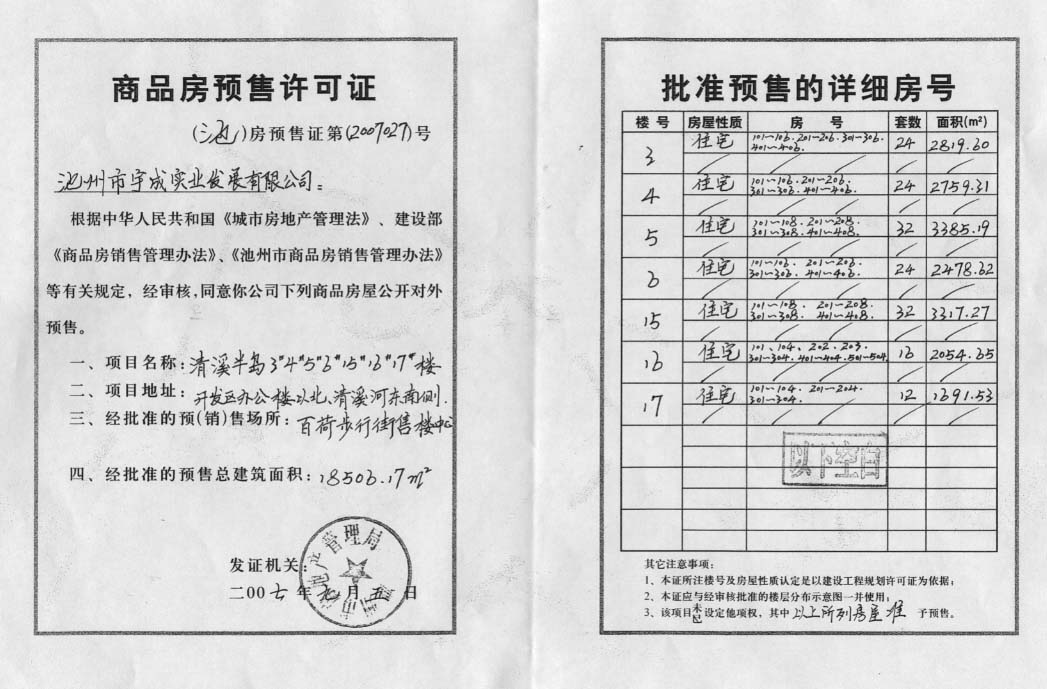 商品房预售许可证
(池)房预售证第(2007027)号
池州市宇成实业发展有限公司：
根据中华人民共和国《城市房地产管理法》、建设部
《商品房销售管理办法》、《池州市商品房销售管理办法》
等有关规定，经审核，同意你公司下列商品房屋公开对外
预售。
一、项目名称：清溪半岛3#4#5#6#15#16#17#楼
二、项目地址：开发区办公楼以北、清溪河东南侧.
三、经批准的预(销)售场所：百荷步行街售楼中心
四、经批准的预售总建筑面积：18506.17m²
发证机关：
地产管理局
二00七年 月五日
批准预售的详细房号
楼号 房屋性质 房号 套数 面积(m²)
3 住宅 101~106.201~206.301~306. 24 2819.60
401~406.
4 住宅 101~106.201~206. 24 2759.31
301~306.401~406.
5 住宅 101~108.201~208. 32 3385.19
301~308.401~408.
6 住宅 101~106.201~206. 24 2478.62
301~306.401~406.
15 住宅 101~108.201~208. 32 3317.27
301~308.401~408.
16 住宅 101、104、202.203. 16 2054.65
301~304.401~404.501~504
17 住宅 101~104.201~204. 12 1691.53
301~304.
以下空白
其它注意事项：
1、本证所注楼号及房屋性质认定是以建设工程规划许可证为依据；
2、本证应与经审核批准的楼层分布示意图一并使用；
3、该项目未已设定他项权，其中以上所列房屋准予预售。